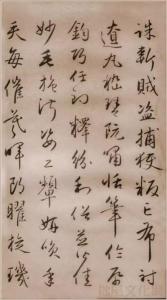 誅斬賊盜捕獲叛亡布射
遼丸嵇琴阮嘯恬筆倫紙
鈞巧任釣釋紛利俗並皆佳
妙毛施淑姿工顰妍咲年
矢每催羲暉朗曜旋璣